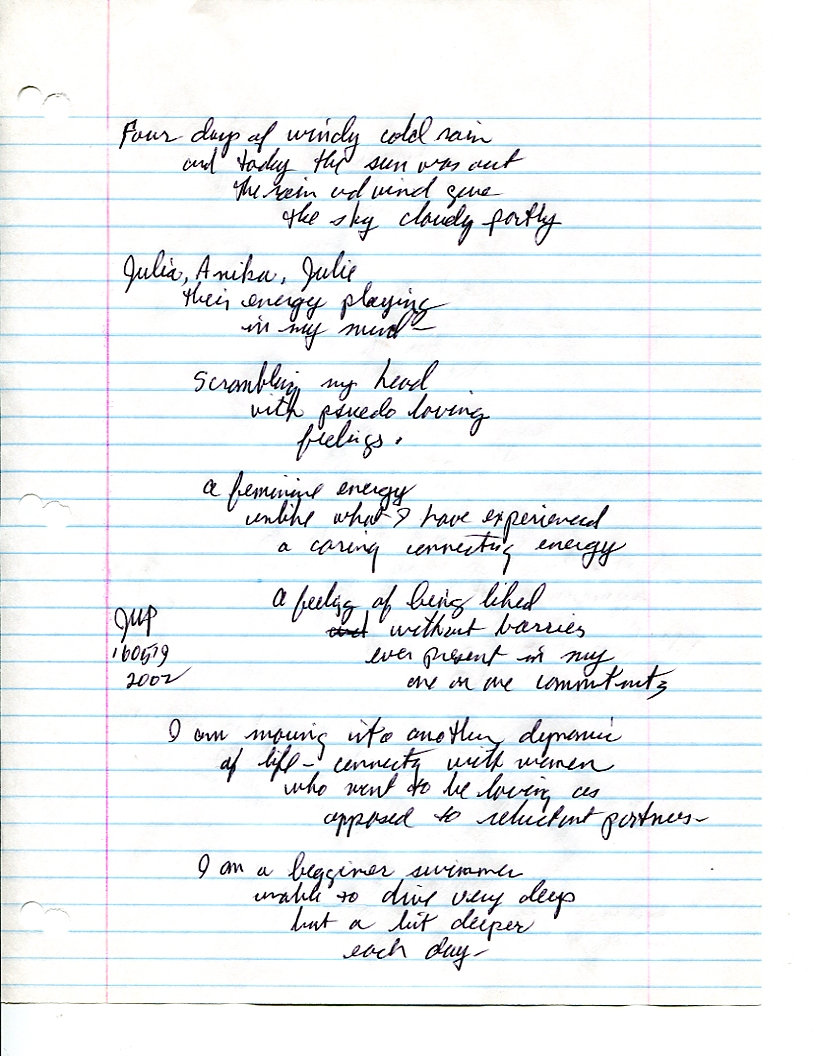 Four days of windy cold rain
and today the sun was out
the rain and wind gone
the sky cloudy partly
Julia, Anika, Julie
their energy playing
in my mind -
Scrambling my head
with psuedo loving
feelings.
a feminine energy
unlike what I have experienced
a caring connecting energy
a feeling of being liked
and without barries
ever present in my
one on one commitments
160519
2002
I am moving into another dynamic
of life - connecting with women
who want to be loving as
opposed to reluctant partners -
I am a begginer swimmer
unable to dive very deep
but a bit deeper
each day -